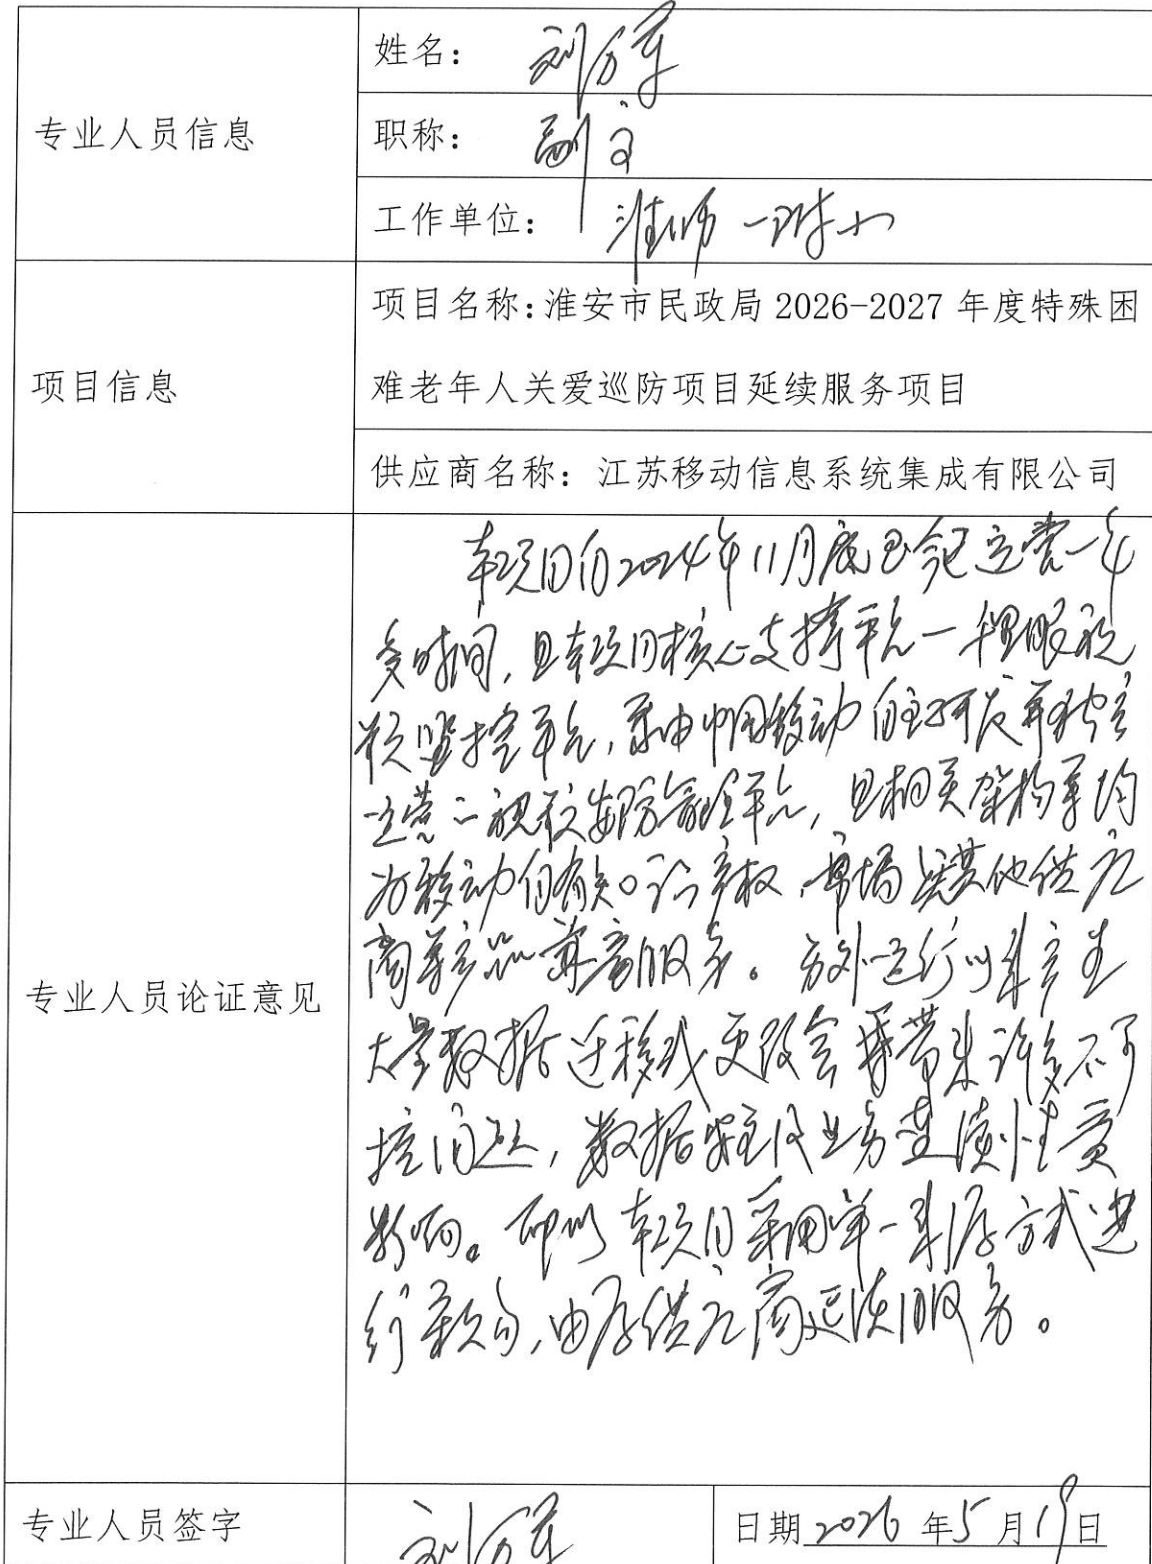 专业人员信息
姓名：刘万军
职称：副高
工作单位：淮师一附小
项目信息
项目名称：淮安市民政局 2026-2027 年度特殊困
难老年人关爱巡防项目延续服务项目
供应商名称：江苏移动信息系统集成有限公司
专业人员论证意见
本项目自2024年11月底至今已运营一年
多时间，且本项目核心支撑平台一千里眼视
频监控平台，系由中国移动自主研发并独立
运营之视频安防管理平台，且相关架构等均
为移动自有知识产权，市场无其他供应
商等产品兼容服务。另外运行以来产生
大量数据迁移或更改会带来许多不可
控问题，数据安全及业务连续性受
影响。所以本项目采用单一来源方式进
行采购，由原供应商延续服务。
专业人员签字
刘万军
日期 2026 年 5 月 19 日